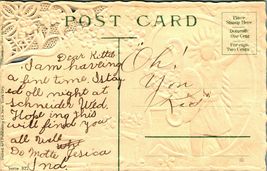 POST CARD
Place
Stamp Here
Domestic
One Cent
Foreign
Two Cents
Dear Kittie
I am having
a fine time. I stay
ed all night at
Schneider Wed.
Hoping this
will find you
all well
De Motte
Ind.
"Oh!
You
Kid"